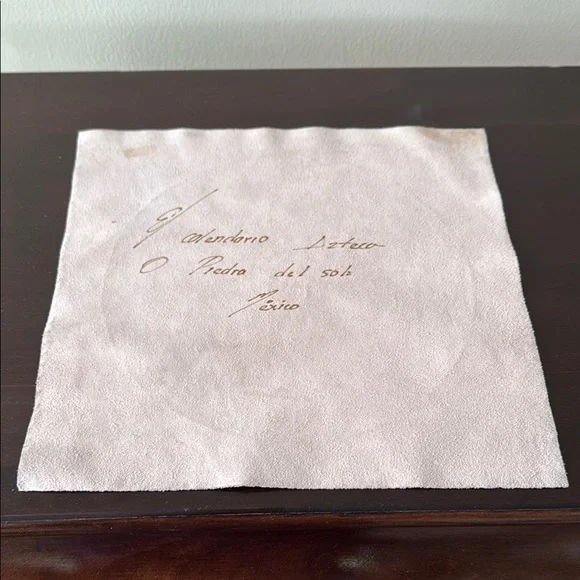 El
Calendario Azteca
O Piedra del sol
México